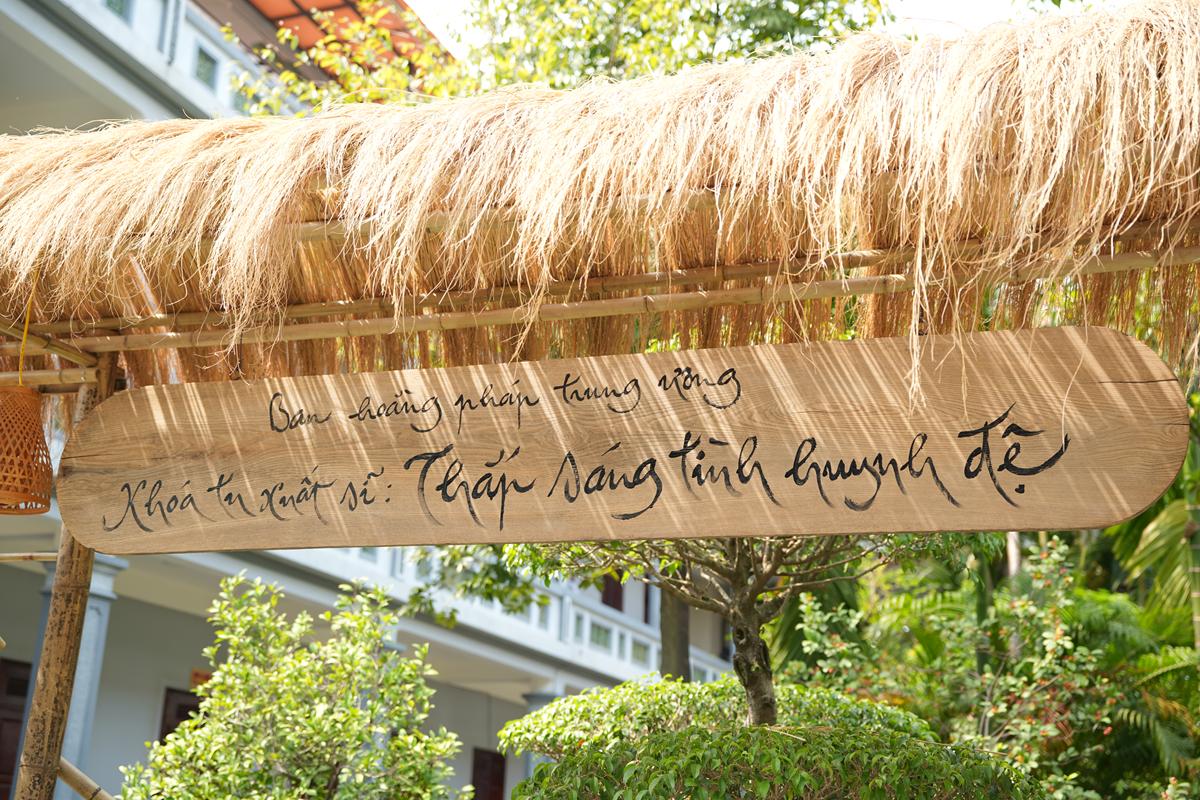 Ban hoằng pháp trung ương
Khóa tu xuất sĩ: Thắp sáng tình huynh đệ